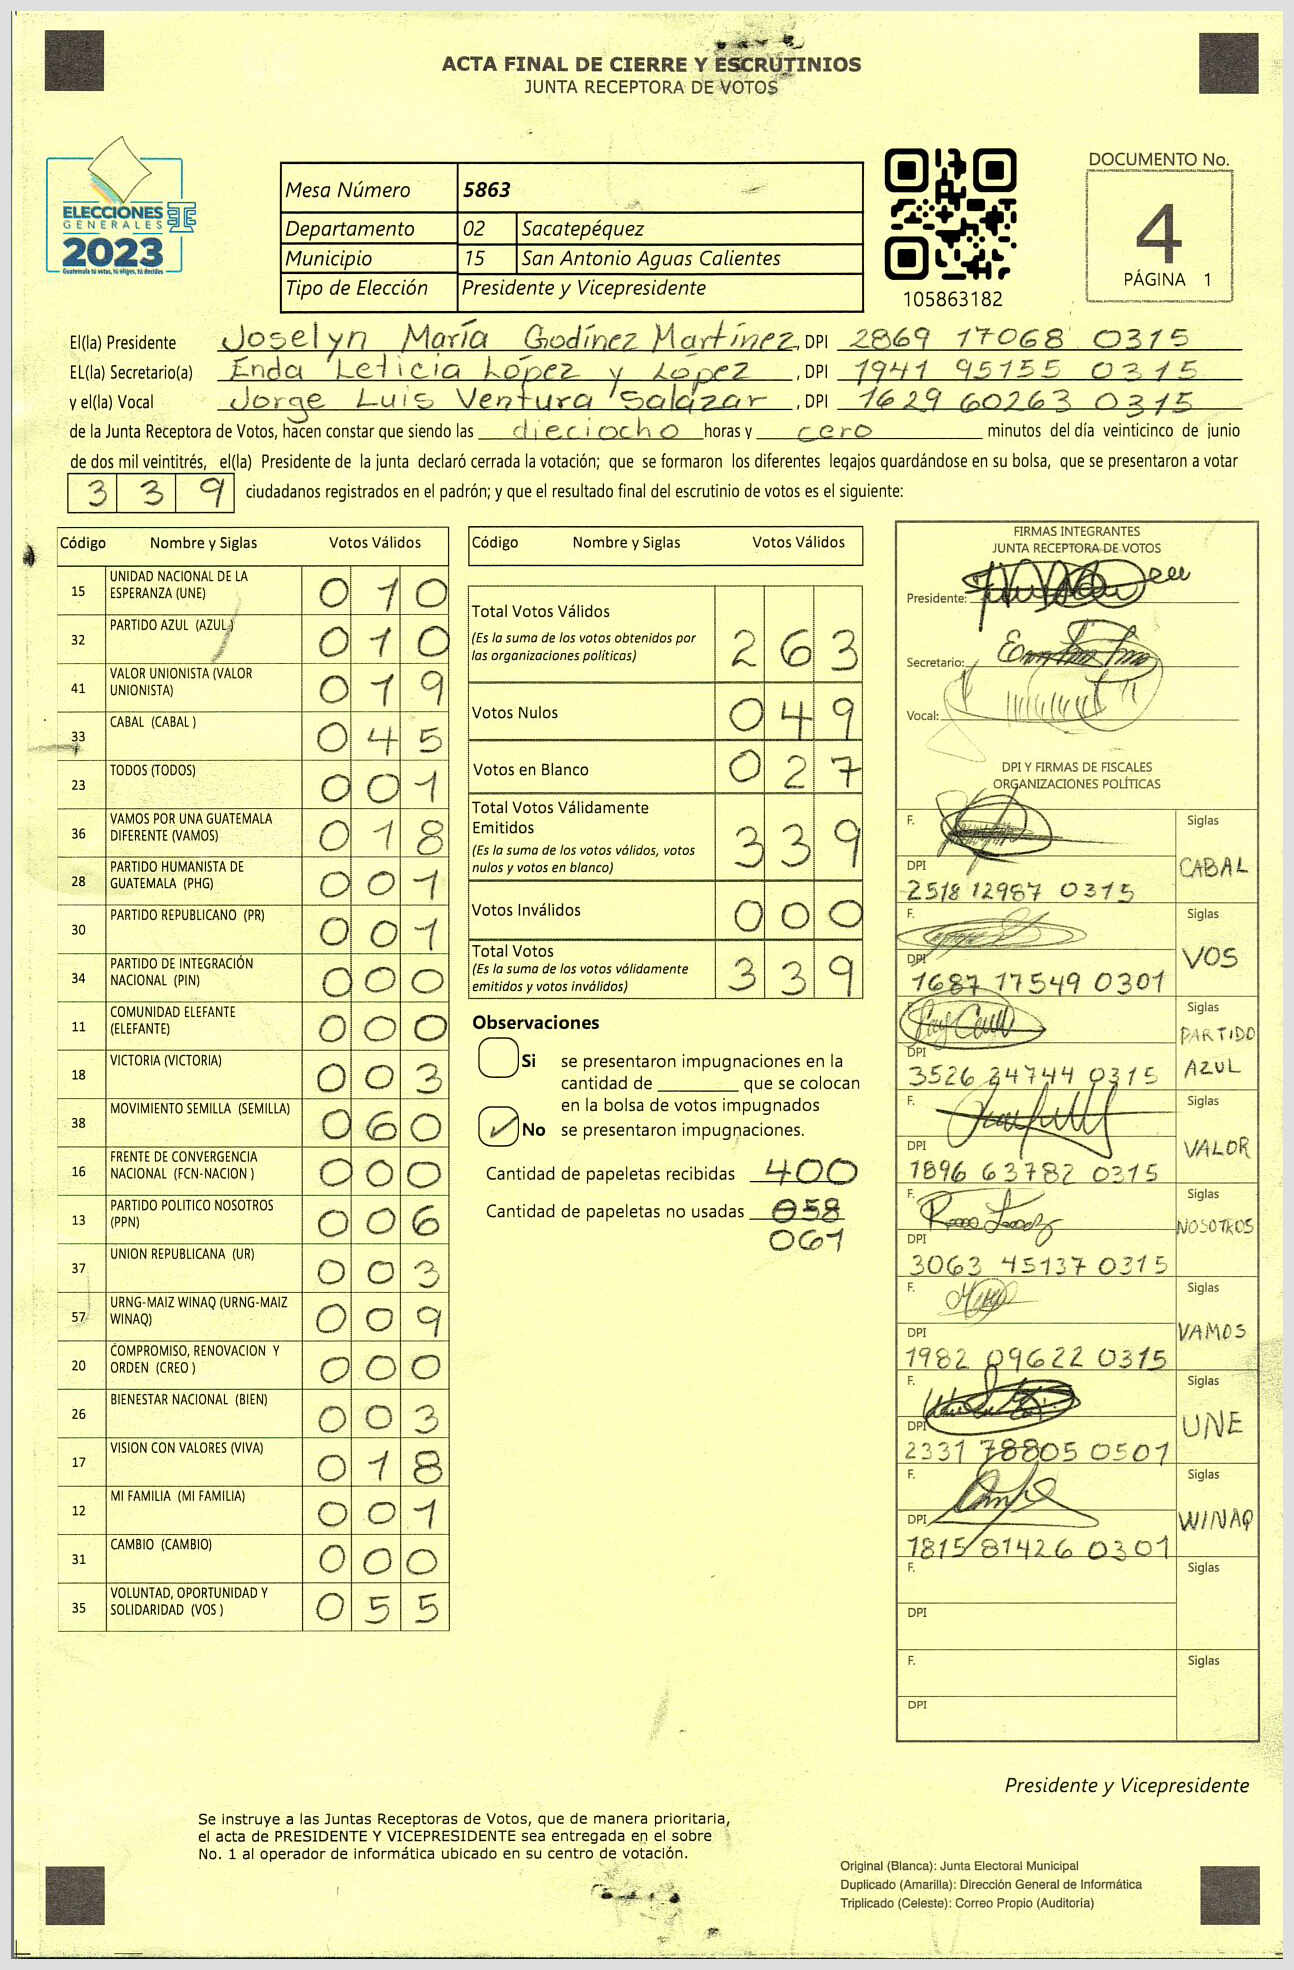 ACTA FINAL DE CIERRE Y ESCRUTINIOS
JUNTA RECEPTORA DE VOTOS
ELECCIONES
GENERALES
2023
Guatemala tú votas, tú eliges, tú decides
Mesa Número 5863
Departamento 02 Sacatepéquez
Municipio 15 San Antonio Aguas Calientes
Tipo de Elección Presidente y Vicepresidente
105863182
DOCUMENTO No.
4
PÁGINA 1
El(la) Presidente Joselyn María Godínez Martínez, DPI 2869 17068 0315
EL(la) Secretario(a) Enda Leticia López y López, DPI 1941 95155 0315
y el(la) Vocal Jorge Luis Ventura Salazar, DPI 1629 60263 0315
de la Junta Receptora de Votos, hacen constar que siendo las dieciocho horas y cero minutos del día veinticinco de junio
de dos mil veintitrés, el(la) Presidente de la junta declaró cerrada la votación; que se formaron los diferentes legajos quardándose en su bolsa, que se presentaron a votar
339 ciudadanos registrados en el padrón; y que el resultado final del escrutinio de votos es el siguiente:
Código Nombre y Siglas Votos Válidos
15 UNIDAD NACIONAL DE LA ESPERANZA (UNE) 010
32 PARTIDO AZUL (AZUL) 010
41 VALOR UNIONISTA (VALOR UNIONISTA) 019
33 CABAL (CABAL ) 045
23 TODOS (TODOS) 001
36 VAMOS POR UNA GUATEMALA DIFERENTE (VAMOS) 018
28 PARTIDO HUMANISTA DE GUATEMALA (PHG) 001
30 PARTIDO REPUBLICANO (PR) 001
34 PARTIDO DE INTEGRACIÓN NACIONAL (PIN) 000
11 COMUNIDAD ELEFANTE (ELEFANTE) 000
18 VICTORIA (VICTORIA) 003
38 MOVIMIENTO SEMILLA (SEMILLA) 060
16 FRENTE DE CONVERGENCIA NACIONAL (FCN-NACION ) 000
13 PARTIDO POLITICO NOSOTROS (PPN) 006
37 UNION REPUBLICANA (UR) 003
57 URNG-MAIZ WINAQ (URNG-MAIZ WINAQ) 009
20 COMPROMISO, RENOVACION Y ORDEN (CREO ) 000
26 BIENESTAR NACIONAL (BIEN) 003
17 VISION CON VALORES (VIVA) 018
12 MI FAMILIA (MI FAMILIA) 001
31 CAMBIO (CAMBIO) 000
35 VOLUNTAD, OPORTUNIDAD Y SOLIDARIDAD (VOS ) 055
Código Nombre y Siglas Votos Válidos
Total Votos Válidos 263
(Es la suma de los votos obtenidos por
las organizaciones políticas)
Votos Nulos 049
Votos en Blanco 027
Total Votos Válidamente
Emitidos 339
(Es la suma de los votos válidos, votos
nulos y votos en blanco)
Votos Inválidos 000
Total Votos 339
(Es la suma de los votos válidamente
emitidos y votos inválidos)
Observaciones
Si se presentaron impugnaciones en la
cantidad de ________ que se colocan
en la bolsa de votos impugnados
No se presentaron impugnaciones.
Cantidad de papeletas recibidas 400
Cantidad de papeletas no usadas 058
061
FIRMAS INTEGRANTES
JUNTA RECEPTORA DE VOTOS
Presidente:
Secretario:
Vocal:
DPI Y FIRMAS DE FISCALES
ORGANIZACIONES POLÍTICAS
F. Siglas
CABAL
DPI
2518 12987 0315
F. Siglas
VOS
DPI
1687 17549 0301
Siglas
PARTIDO
AZUL
DPI
3526 24744 0315
F. Siglas
VALOR
DPI
1896 63782 0315
F. Siglas
NOSOTROS
DPI
3063 45137 0315
F. Siglas
VAMOS
DPI
1982 09622 0315
F. Siglas
UNE
DPI
2331 78805 0501
F. Siglas
WINAQ
DPI
1815 81426 0301
F. Siglas
DPI
F. Siglas
DPI
Presidente y Vicepresidente
Se instruye a las Juntas Receptoras de Votos, que de manera prioritaria,
el acta de PRESIDENTE Y VICEPRESIDENTE sea entregada en el sobre
No. 1 al operador de informática ubicado en su centro de votación.
Original (Blanca): Junta Electoral Municipal
Duplicado (Amarilla): Dirección General de Informática
Triplicado (Celeste): Correo Propio (Auditoría)